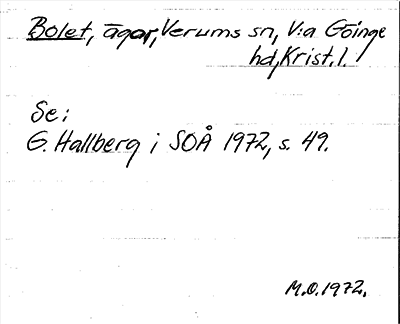 Bolet, ägor, Verums sn, V:a Göinge
hd, Krist. l.
Se:
G. Hallberg i SOÅ 1972, s. 49.
M.O. 1972.